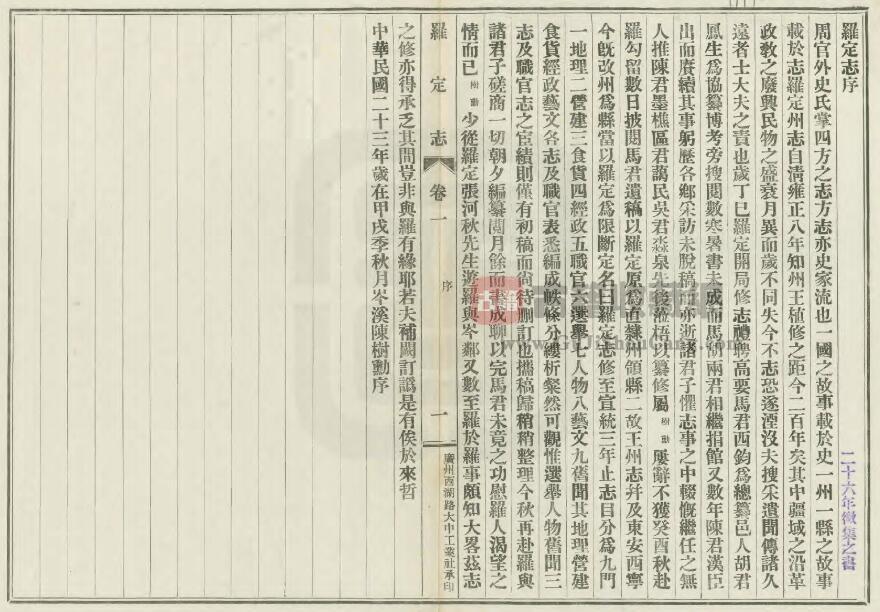 羅定志序
周官外史氏掌四方之志方志亦史家流也一國之故事載於史一州一縣之故事
載於志羅定州志自清雍正八年知州王植修之距今二百年矣其中疆域之沿革
政敎之廢興民物之盛衰月異而歲不同失今不志恐遂湮沒夫搜采遺聞傳諸久
遠者士大夫之責也歲丁巳羅定開局修志禮聘高要馬君西鈞爲總纂邑人胡君
鳳生爲協纂博考旁搜閱數寒暑書未成而馬胡兩君相繼捐館又數年陳君漢臣
出而賡續其事躬歷各鄉采訪未脫稿而亦逝諸君子懼志事之中輟慨繼任之無
人推陳君墨樵區君藹民吳君淼泉先後蒞梧以纂修屬樹勳屢辭不獲癸酉秋赴
羅勾留數日披閱馬君遺稿以羅定原爲直隸州領縣二故王州志幷及東安西寧
今旣改州爲縣當以羅定爲限斷定名曰羅定志修至宣統三年止志目分爲九門
一地理二營建三食貨四經政五職官六選舉七人物八藝文九舊聞其地理營建
食貨經政藝文各志及職官表悉編成帙條分縷析粲然可觀惟選舉人物舊聞三
志及職官志之宦績則僅有初稿而尙待删訂也攜稿歸稍稍整理今秋再赴羅與
諸君子磋商一切朝夕編纂閱月餘而書成聊以完馬君未竟之功慰羅人渴望之
情而已樹勳少從羅定張河秋先生遊羅與岑鄰又數至羅於羅事頗知大畧茲志
羅定志 卷一 序 一 廣州西湖路大中工業社承印
之修亦得承乏其間豈非與羅有緣耶若夫補闕訂譌是有俟於來哲
中華民國二十三年歲在甲戌季秋月岑溪陳樹勳序
二十六年徵集之書
古籍